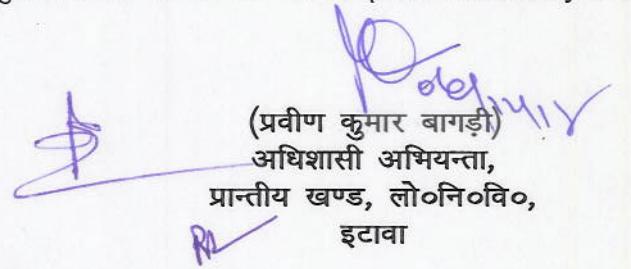 (प्रवीण कुमार बागड़ी)
अधिशासी अभियन्ता,
प्रान्तीय खण्ड, लो०नि०वि०,
इटावा